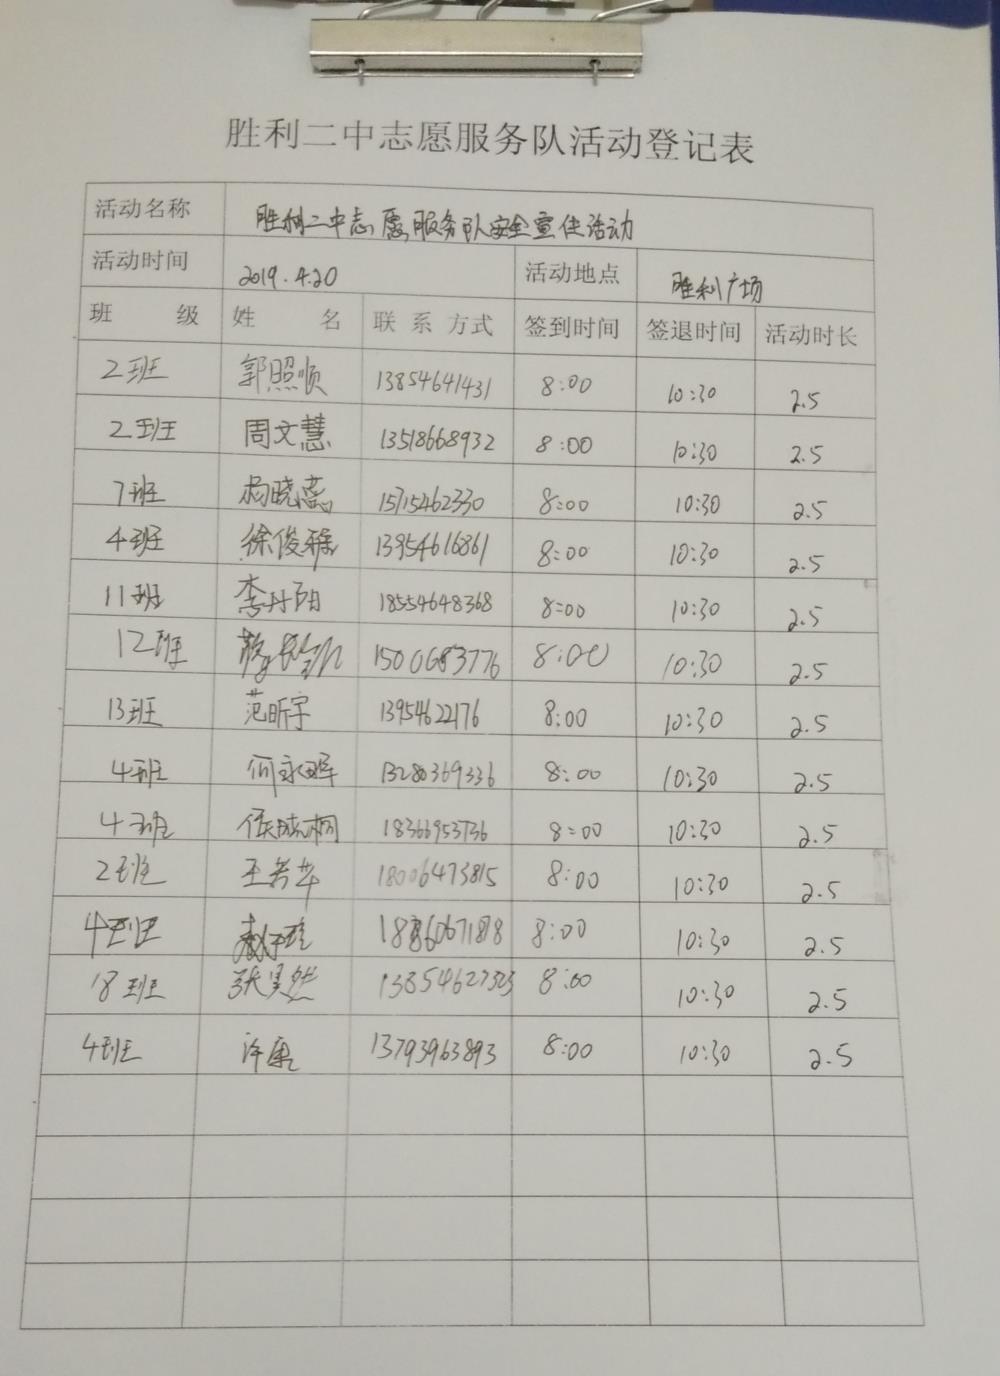 胜利二中志愿服务队活动登记表
活动名称 胜利二中志愿服务队安全宣传活动
活动时间 2019.4.20 活动地点 胜利广场
班 级 姓 名 联 系 方式 签到时间 签退时间 活动时长
2班 郭照顺 13854641431 8:00 10:30 2.5
2班 周文慧 13518668932 8:00 10:30 2.5
7班 杨晓蕊 15715462330 8:00 10:30 2.5
4班 徐俊 13954616861 8:00 10:30 2.5
11班 李丹阳 18554648368 8:00 10:30 2.5
12班 1500683776 8:00 10:30 2.5
13班 范昕宇 13954622176 8:00 10:30 2.5
4班 何永晖 13280369336 8:00 10:30 2.5
4班 18366953736 8:00 10:30 2.5
2班 王若华 18006473815 8:00 10:30 2.5
4班 18860671818 8:00 10:30 2.5
18班 张昊然 13854627323 8:00 10:30 2.5
4班 许康 13793963893 8:00 10:30 2.5